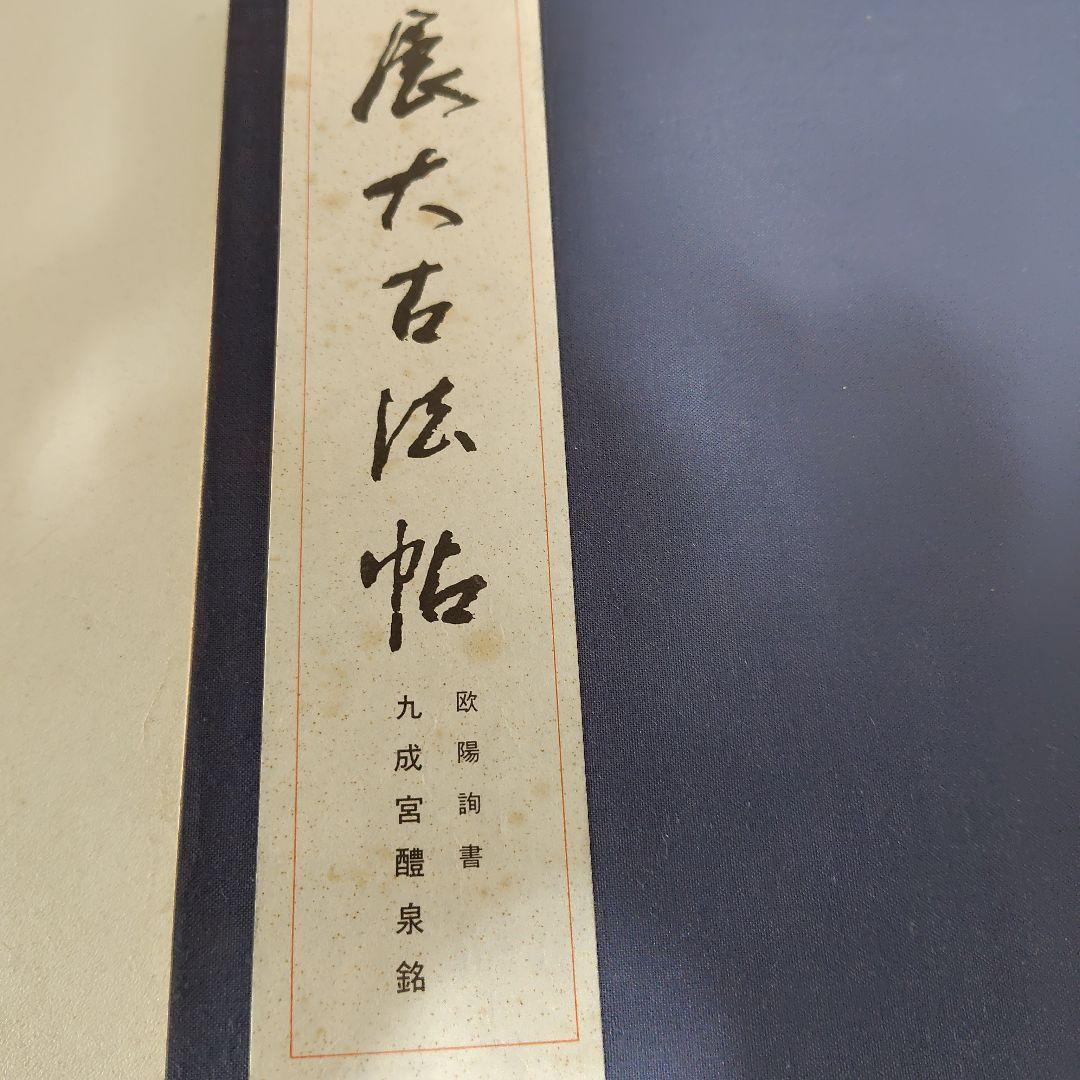 展大古法帖
欧陽詢書
九成宮醴泉銘